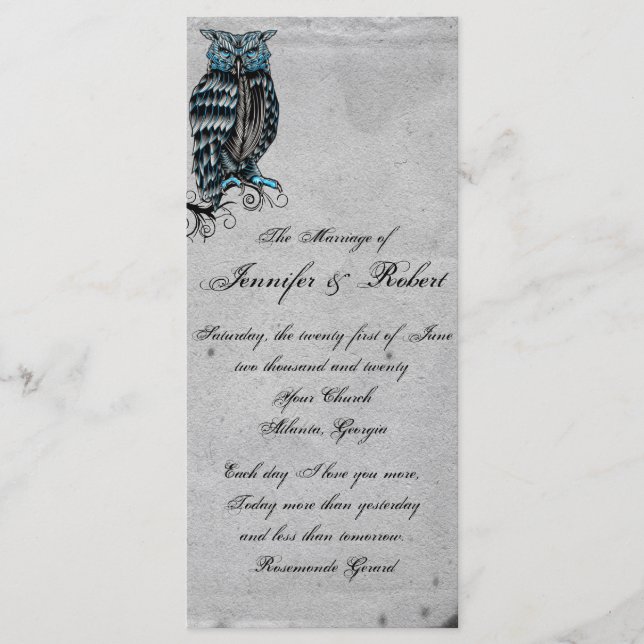 The Marriage of
Jennifer & Robert
Saturday, the twenty-first of June
two thousand and twenty
Your Church
Atlanta, Georgia
Each day I love you more,
Today more than yesterday
and less than tomorrow.
Rosemonde Gerard